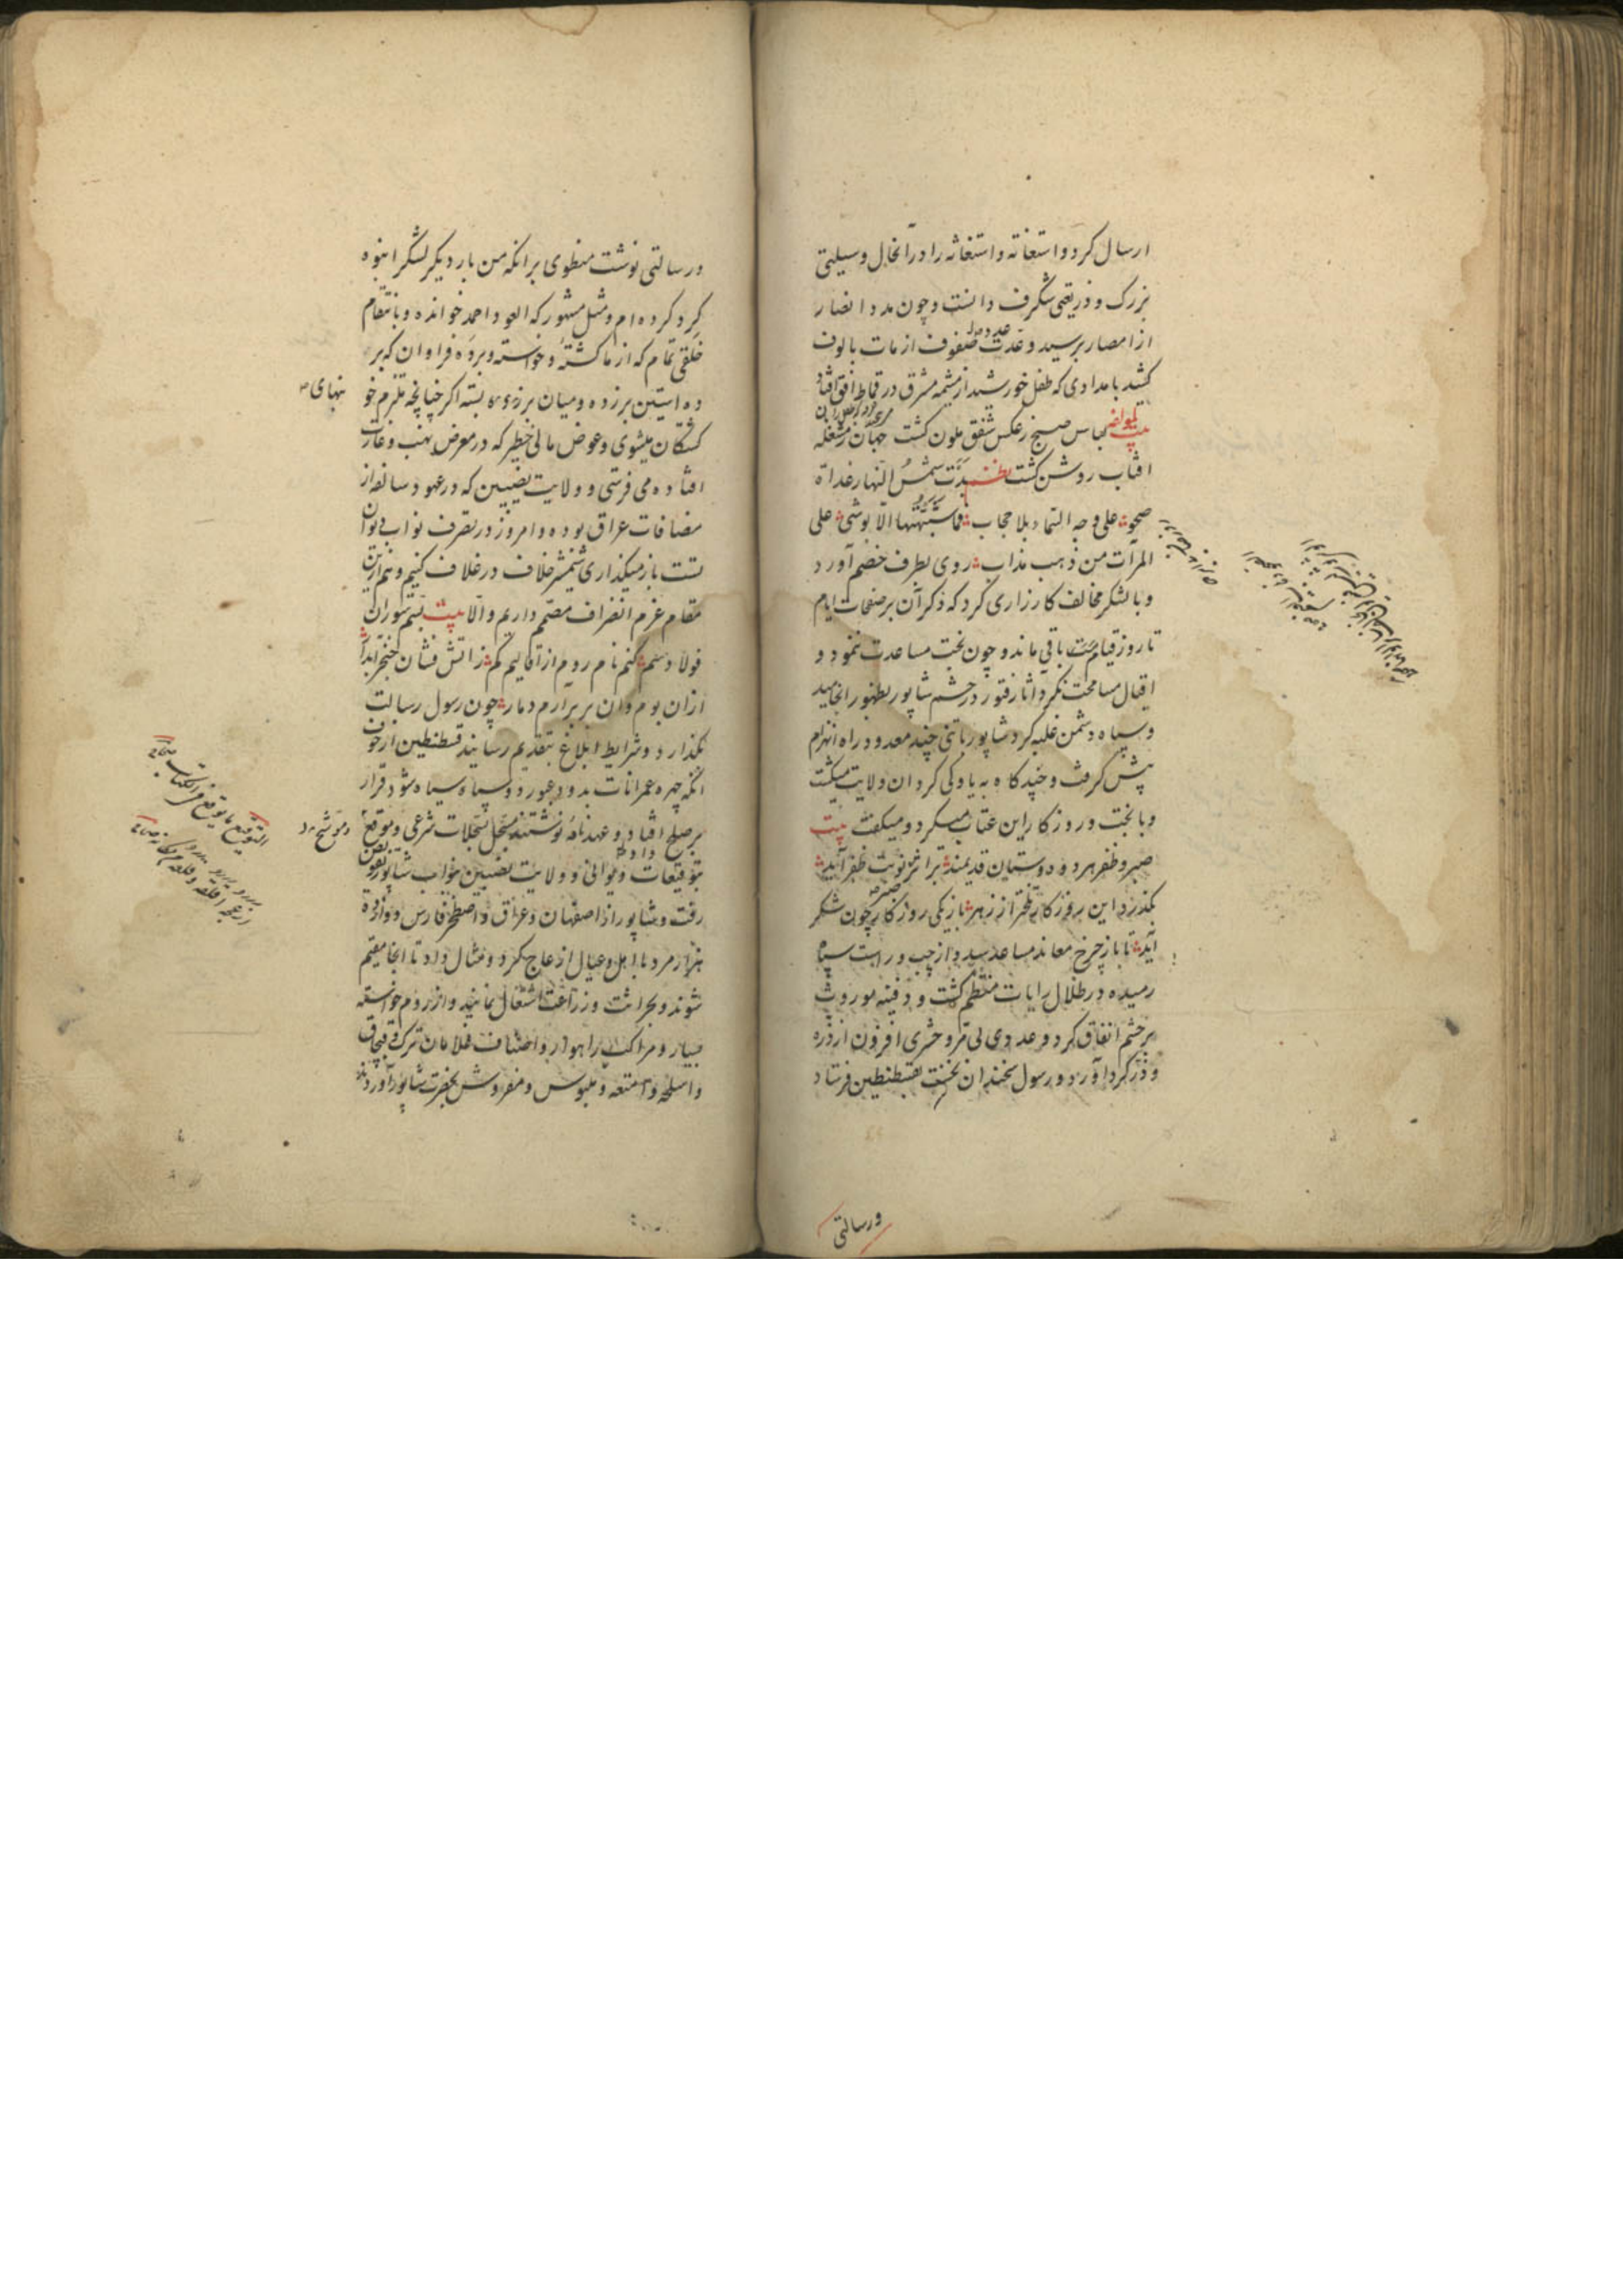 ارسال کرد و استعانه و استغاثه را در آنحال وسیلتی
بزرک و ذریعتی شکرف دانست و چون مدد انصار
از امصار برسید و عدت صفوف از مات بالوف
کشید بامدادی که طفل خورشید از مشیمه مشرق در قماط افق افتاد
بیت لباس صبح ز عکس شفق ملون کشت جهان ز مشغله
افتاب روشن کشت بدت شمس النهار غداة
صحو علی وجه السماء بلا حجاب فما شبهتها الا بوشی علی
المرآت من ذهب مذاب روی بطرف خصم آورد
و با لشکر مخالف کارزاری کرد که ذکر آن بر صفحات ایام
تا روز قیامت باقی ماند و چون بخت مساعدت ننمود و
اقبال مسامحت نکرد اثار فتور در حشم شاپور بظهور انجامید
و سپاه دشمن غلبه کرد شاپور با تنی چند معدود راه انهزام
پیش کرفت و چند کاه به یاوکی کرد ان ولایت میکشت
و با بخت و روزکار این عتاب میکرد و میکفت بیت
صبر و ظفر هر دو دوستان قدیمند بر اثر صبر نوبت ظفر آید
بکذرد این روزکار تلختر از زهر بار دیکر روزکار چون شکر
آید تا باز چرخ معاند مساعد شد و از چپ و راست سپاه
رمیده در ظلال رایات منتظم کشت و دفینه موروث
بر حشم انفاق کرد و عددی بی مر و حشری افزون از ذره
و ذر کرد آورد و رسول سخندان نخست بقسطنطین فرستاد
ورسالتی
ورسالتی نوشت منطوی بر انکه من بار دیکر لشکر انبوه
کرد کرده ام و مثل مشهور که العود احمد خوانده و بانتقام
خلقی تمام که از ما کشته و خواسته و برده فراوان که بر
ده استین بر زده و میان بر بسته اکر چنانچه ملزم خو
بهای
کشتکان میشوی و عوض مالی خطیر که در معرض نهب و غارت
افتاده می فرستی و ولایت نصیبین که در عهود سالفه از
مضافات عراق بوده و امروز در تصرف نواب دیوان
تست باز میکذاری شمشیر خلاف در غلاف کنیم و هم ازین
مقام عزم انصراف مصمم داریم و الا بیت بسم سوران
فولاد سم کنم نام روم از اقالیم کم ز اتش فشان خنجر ابدار
ازان بوم و ان بر برارم دمار چون رسول رسالت
بکذارد و شرایط ابلاغ بتقدیم رسانید قسطنطین از خوف
انکه چهره عمرانات بدود عبور دود سپاه سیاه شود قرار
بر صلح افتاد و عهدنامه نوشتند مسجل بسجلات شرعی و موقع
و موشح
بتوقیعات دیوانی و ولایت نصیبین بنواب شاپور تفویض
رفت و شاپور از اصفهان و عراق و اصطخر فارس دوازده
هزار مرد با اهل و عیال ازعاج کرد و مثال داد تا انجا مقیم
شوند و بحراثت و زراعت اشتغال نمایند و از روم خواسته
بسیار و مراکب راهوار و اصناف غلامان ترک و قبچاق
و اسلحه و امتعه و ملبوس و مفروش بحضرت شاپور آوردند